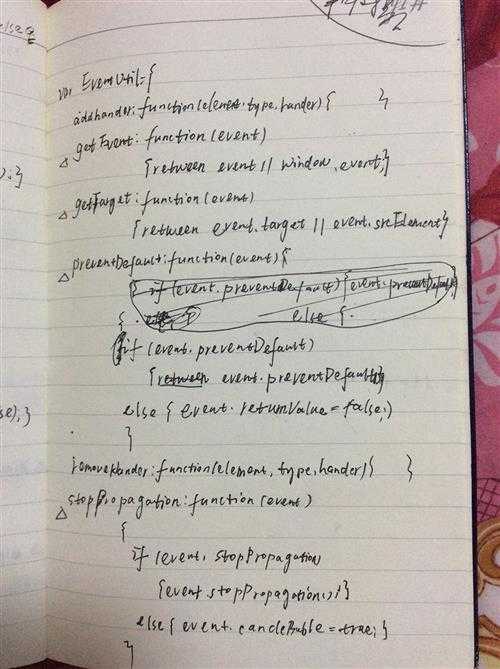 else {
var EvemUtil={
addhander:function(element,type,hander){ }
△ getEvent: function(event)
{retween event || window.event;}
△ getTarget: function(event)
{retween event.target || event.sreElement}
△ preventDefault:function(event){
} if (event.preventDefault) {event.preventDefault;
{ else {
if (event.preventDefault)
{retween event.preventDefault()}
else { event.returnValue=false;)
}
removeHander:function(element, type,hander){ }
△ stopPropagation:function(event)
{
if (event.stopPropagation
{event.stopPropagation();}
else{ event.cancleBubble=true;}
}